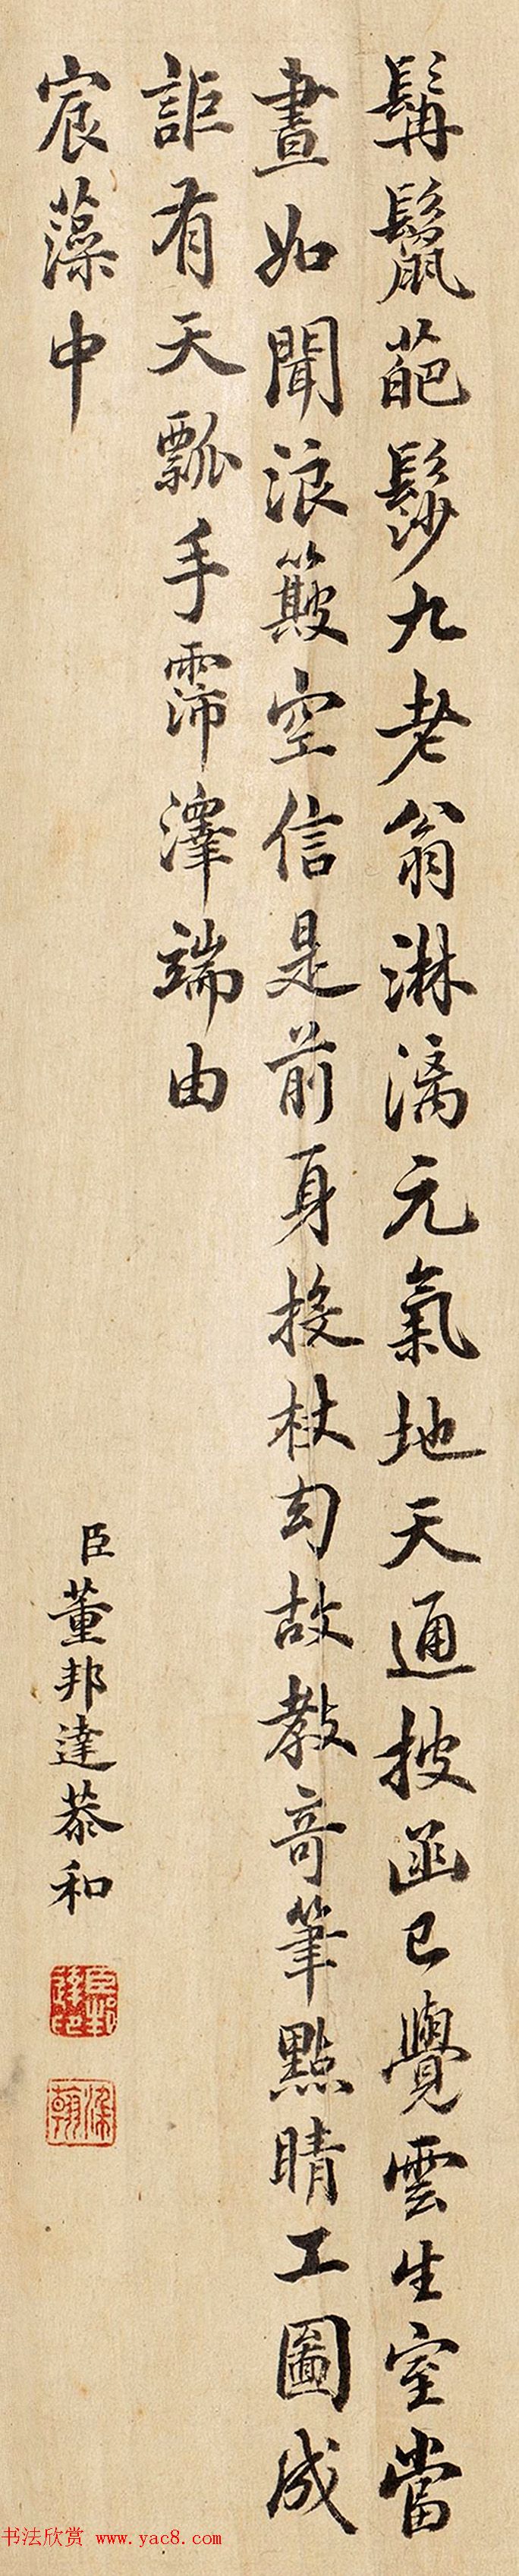 髯鬣葩髿九老翁淋漓元氣地天通披函已覺雲生室當
晝如聞浪簸空信是前身投杖幻故教奇筆點睛工圖成
詎有天瓢手霈澤端由
宸藻中
臣董邦達恭和
書法欣赏 www.yac8.com